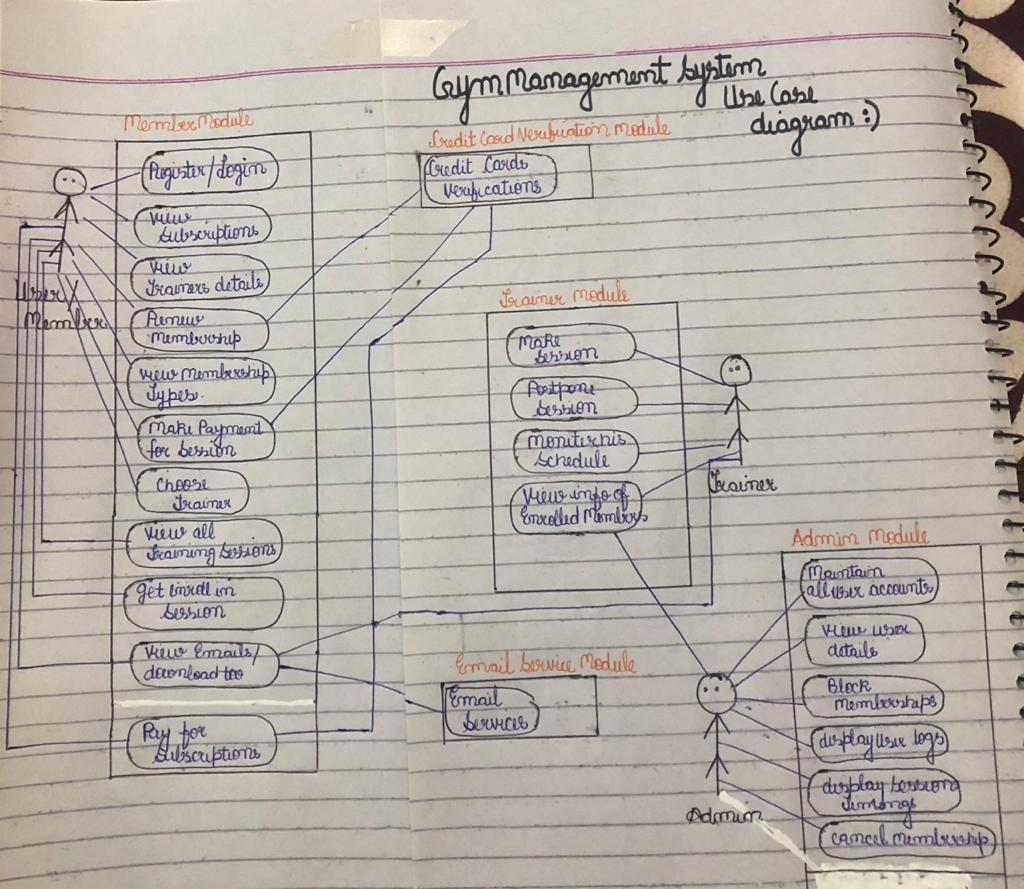 Gym Management System
Use Case
diagram :)
Member Module
Register/Login
View
Subscriptions
View
Trainers details
Renew
Membership
View Membership
Types.
Make Payment
for Session
Choose
Trainer
View all
Training Sessions
Get Enroll in
Session
View Emails/
download too
Pay for
Subscriptions
User/
Member
Credit Card Verification Module
Credit Cards
Verifications
Trainer Module
Make
Session
Postpone
Session
Moniter his
Schedule
View info of
Enrolled Members
Trainer
Email Service Module
Email
Services
Admin Module
Maintain
all user accounts
View user
details
Block
Memberships
display User logs
display session
timings
cancel membership
Admin